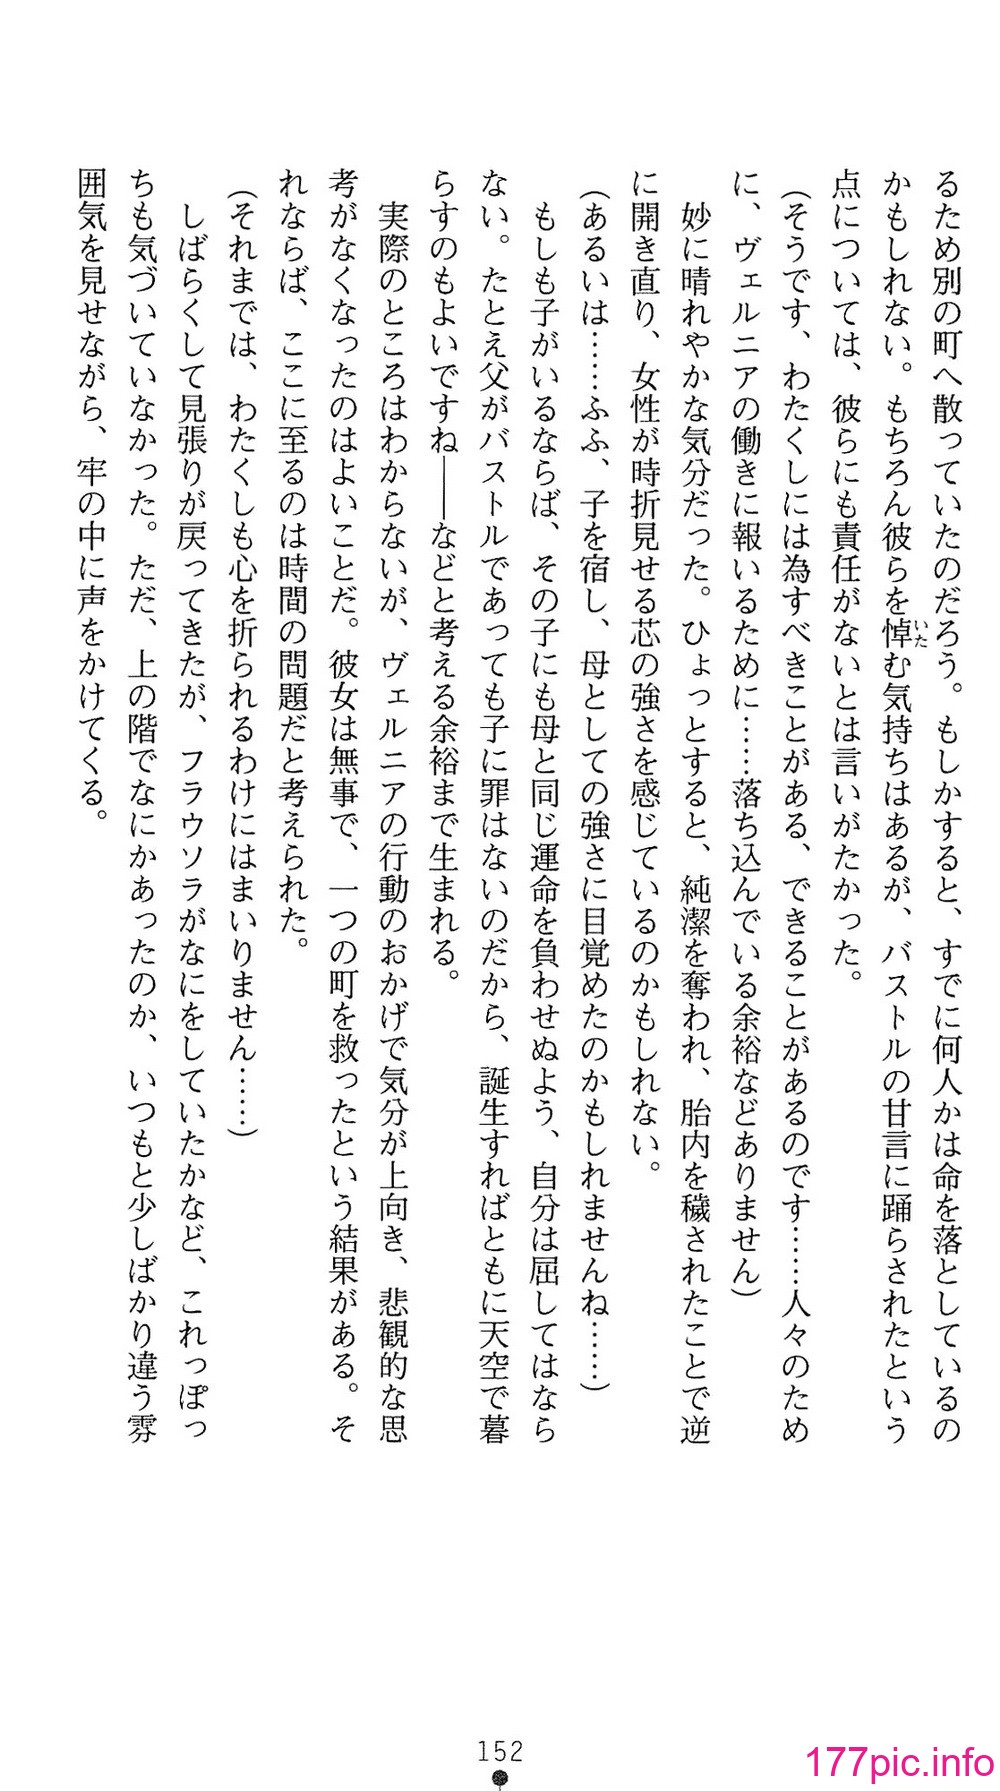 るため別の町へ散っていたのだろう。もしかすると、すでに何人かは命を落としているの
かもしれない。もちろん彼らを悼む気持ちはあるが、バストルの甘言に踊らされたという
いた
点については、彼らにも責任がないとは言いがたかった。
(そうです、わたくしには為すべきことがある、できることがあるのです……人々のため
に、ヴェルニアの働きに報いるために……落ち込んでいる余裕などありません)
　妙に晴れやかな気分だった。ひょっとすると、純潔を奪われ、胎内を穢されたことで逆
に開き直り、女性が時折見せる芯の強さを感じているのかもしれない。
(あるいは……ふふ、子を宿し、母としての強さに目覚めたのかもしれませんね……)
　もしも子がいるならば、その子にも母と同じ運命を負わせぬよう、自分は屈してはなら
ない。たとえ父がバストルであっても子に罪はないのだから、誕生すればともに天空で暮
らすのもよいですね――などと考える余裕まで生まれる。
　実際のところはわからないが、ヴェルニアの行動のおかげで気分が上向き、悲観的な思
考がなくなったのはよいことだ。彼女は無事で、一つの町を救ったという結果がある。そ
れならば、ここに至るのは時間の問題だと考えられた。
(それまでは、わたくしも心を折られるわけにはまいりません……)
　しばらくして見張りが戻ってきたが、フラウソラがなにをしていたかなど、これっぽっ
ちも気づいていなかった。ただ、上の階でなにかあったのか、いつもと少しばかり違う雰
囲気を見せながら、牢の中に声をかけてくる。
152
177pic.info